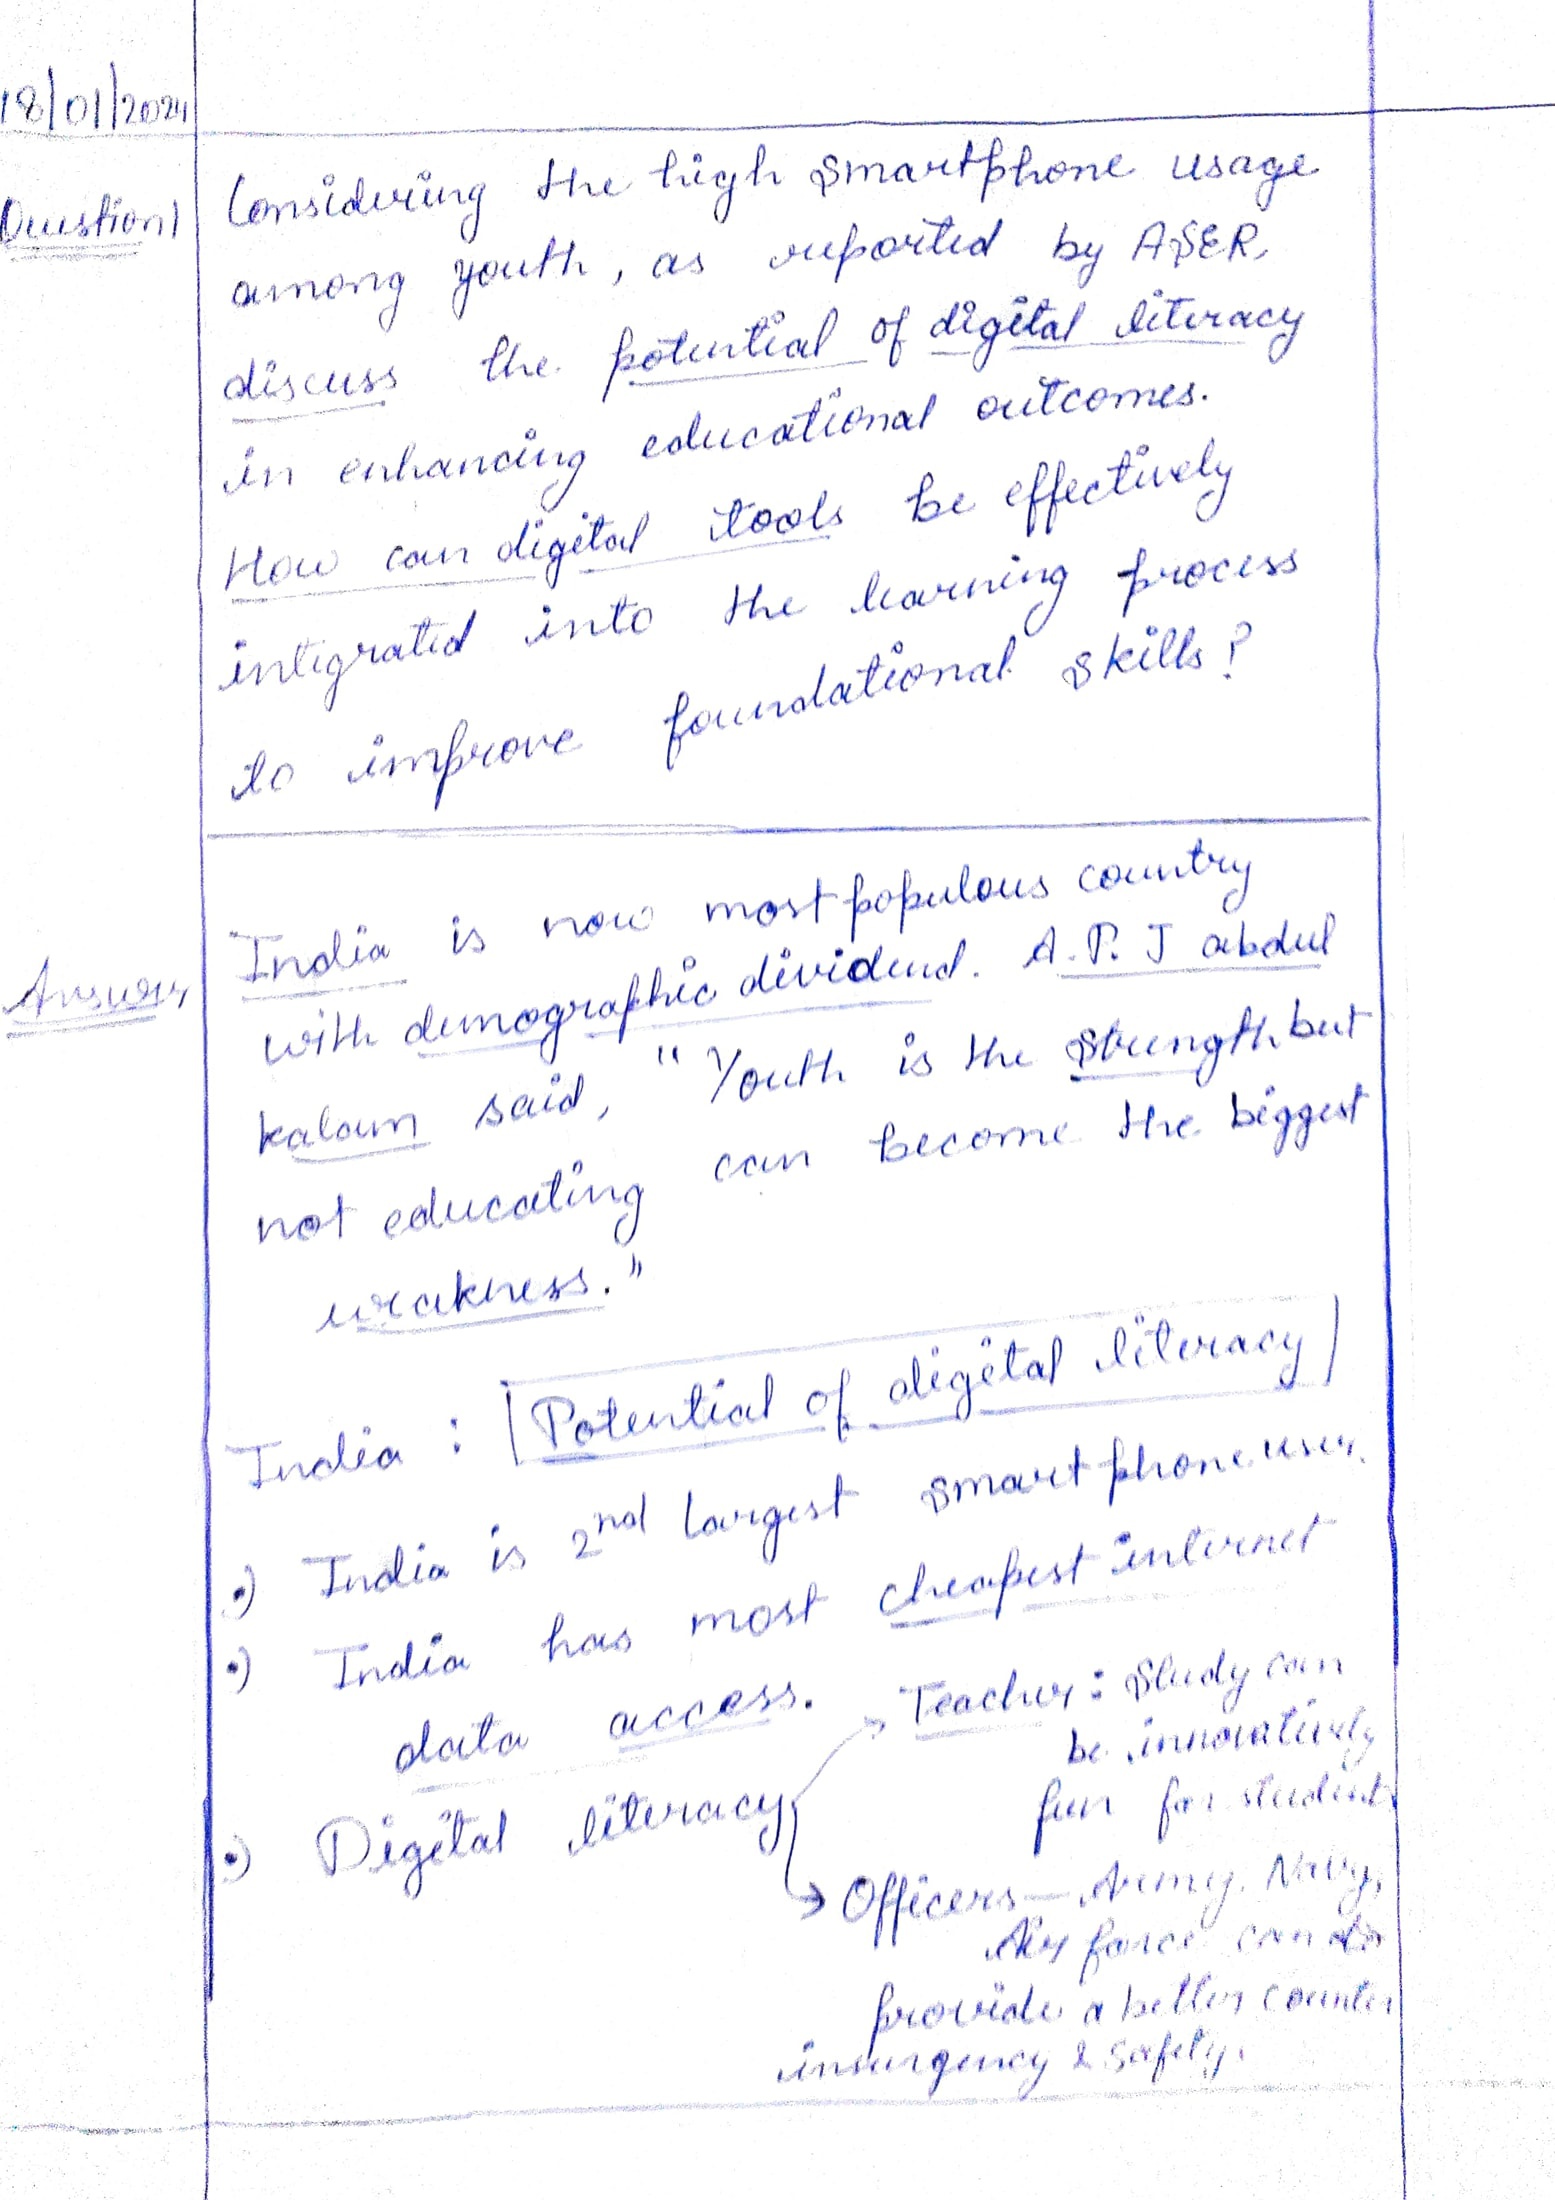 18/01/2024
Question
Considering the high smartphone usage
among youth, as reported by ASER,
discuss the potential of digital literacy
in enhancing educational outcomes.
How can digital tools be effectively
integrated into the learning process
to improve foundational skills?
Answer
India is now most populous country
with demographic dividend. A.P.J abdul
kalam said, "Youth is the strength but
not educating can become the biggest
weakness."
India : Potential of digital literacy
•) India is 2nd largest smartphone user.
•) India has most cheapest internet
data access.
•) Digital literacy
Teacher: Study can
be innovatively
fun for students
Officers - Army, Navy,
Air force can
provide a better counter
insurgency & safety.